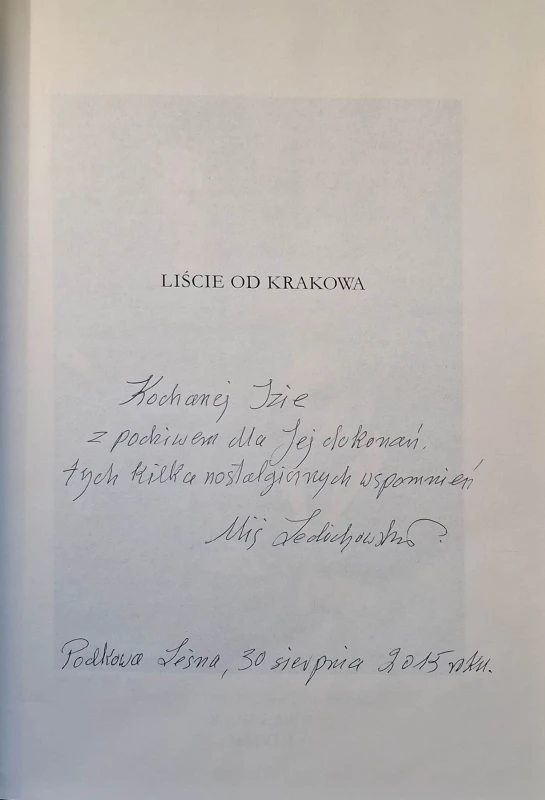 LIŚCIE OD KRAKOWA
Kochanej Izie
z podziwem dla Jej dokonań.
tych kilka nostalgicznych wspomnień
Miś
Podkowa Leśna, 30 sierpnia 2015 roku.